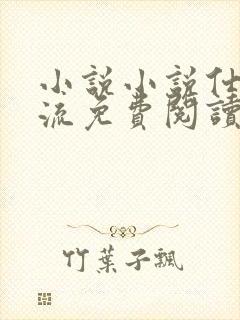 小説小説仕
流免費閱讀
竹葉子飄